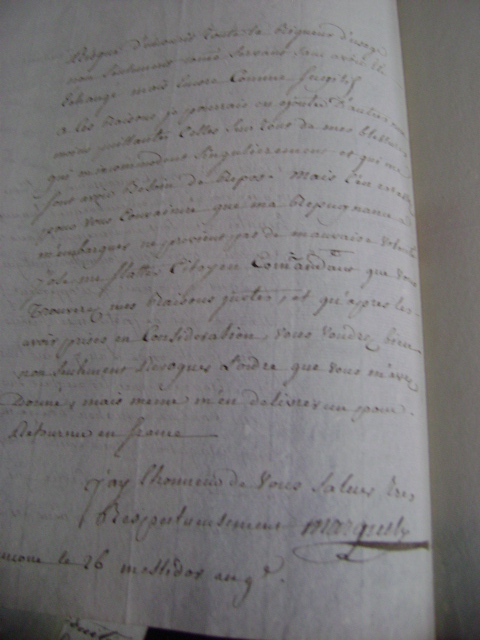 Risque d'encourir toute la Rigueur d'usage
non seulement comme servant sans avoir été
Echangé mais Encore Comme fugitif
a ces Raisons je pourrais en ajouter d'autres non
moins puissantes Celles sur tout de mes blessures
qui m'incommodent singulierement et qui me
font avoir Bésoin de Repos. Mais C'en est assez
pour vous Convaincre que ma Repugnance a
m'embarquer ne provient pas de mauvaise volonté
Je me flatte Citoyen Commandant que vous
Trouverez mes Raisons justes, et qu'apres les
avoir prises en Consideration vous voudrez bien
non seulement Revoquer L'ordre que vous m'avez
Donné, mais meme m'en delivrer un pour
Retourner en france
J'ay l'honneur de vous saluer tres
Respectueusement
le 26 messidor an 7e.